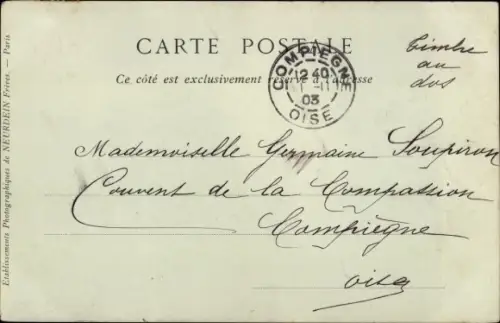 CARTE POSTALE
Ce côté est exclusivement réservé à l'adresse
Timbre
au
dos
COMPIEGNE
12 40
-11
03
OISE
Mademoiselle Germaine Soupiron
Couvent de la Compassion
Compiègne
Oise
Etablissements Photographiques de NEURDEIN Frères. — Paris